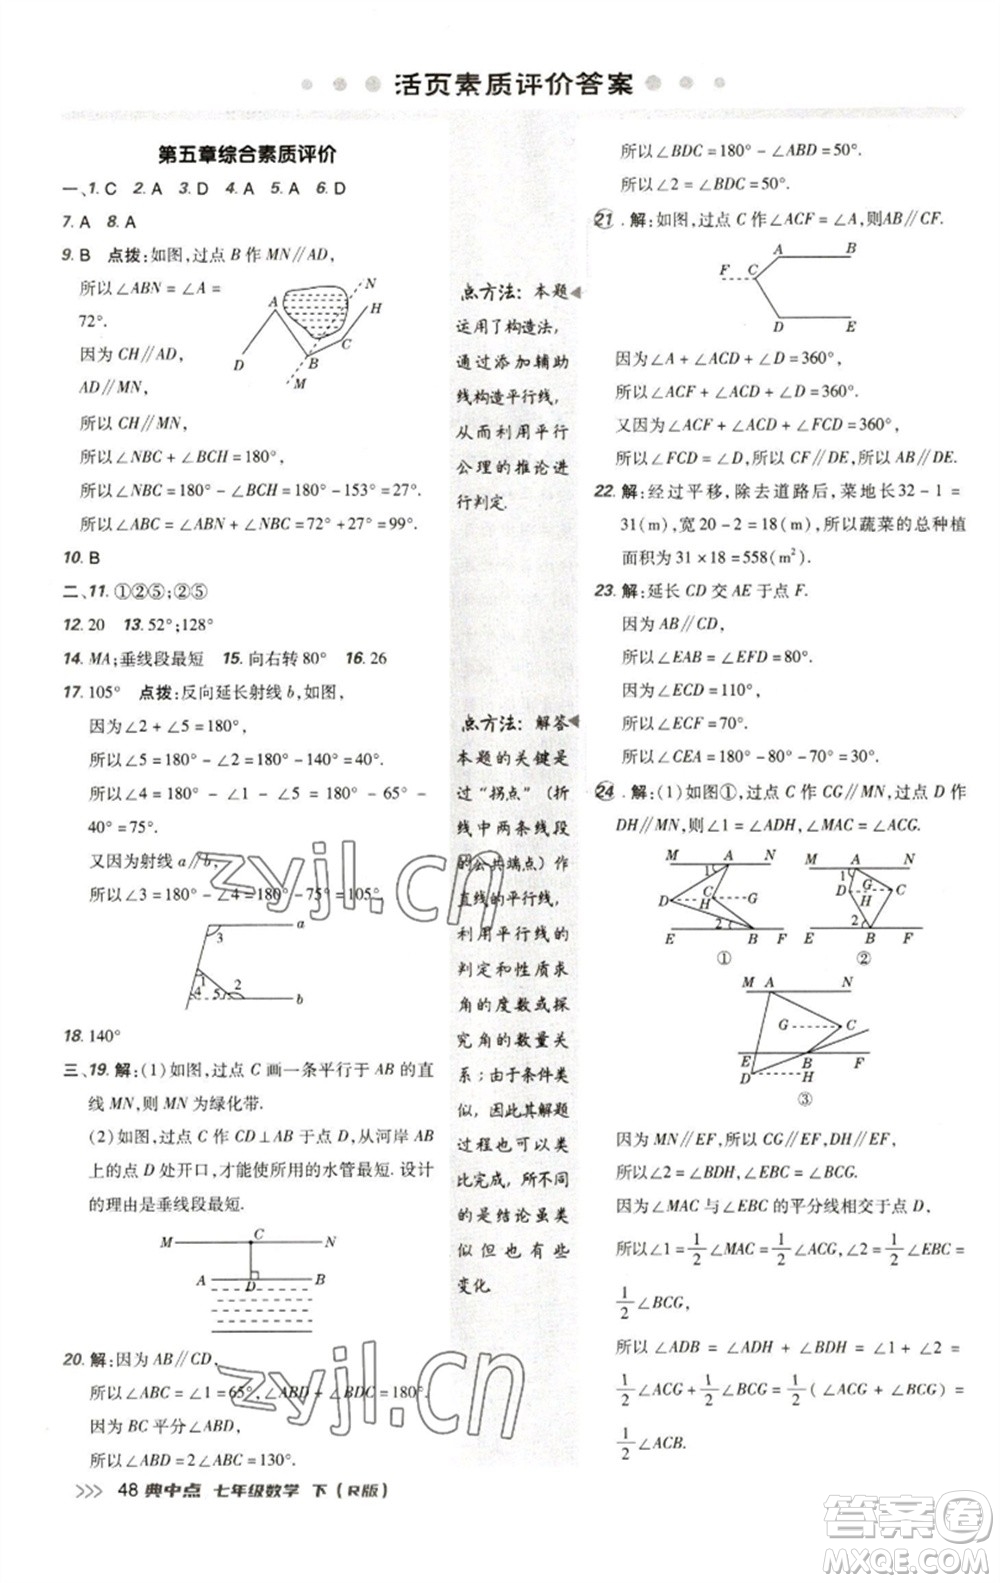 活页素质评价答案
第五章综合素质评价
一、1. C 2. A 3. D 4. A 5. A 6. D
7. A 8. A
9. B 点拨:如图,过点 B 作 MN∥AD,
所以∠ABN=∠A=
72°.
因为 CH∥AD,
AD∥MN,
所以 CH∥MN,
所以∠NBC+∠BCH=180°,
所以∠NBC=180°-∠BCH=180°-153°=27°.
所以∠ABC=∠ABN+∠NBC=72°+27°=99°.
A
N
H
C
D
B
M
10. B
二、11. ①②⑤;②⑤
12. 20 13. 52°;128°
14. MA;垂线段最短 15. 向右转 80° 16. 26
17. 105° 点拨:反向延长射线 b,如图,
因为∠2+∠5=180°,
所以∠5=180°-∠2=180°-115°=65°.
所以∠4=180°-∠1-∠5=180°-65°-
40°=75°.
又因为射线 a∥b,
所以∠3=180°-∠4=180°-75°=105°.
a
3
1
4 5 2
b
18. 140°
三、19. 解:(1)如图,过点 C 画一条平行于 AB 的直
线 MN,则 MN 为绿化带.
(2)如图,过点 C 作 CD⊥AB 于点 D,从河岸 AB
上的点 D 处开口,才能使所用的水管最短. 设计
的理由是垂线段最短.
M C N
A D B
20. 解:因为 AB∥CD,
所以∠ABC=∠1=65°,∠ABD+∠BDC=180°.
因为 BC 平分∠ABD,
所以∠ABD=2∠ABC=130°.
点方法：本题
运用了构造法,
通过添加辅助
线构造平行线,
从而利用平行
公理的推论进
行判定.
点方法：解答
本题的关键是
过“拐点”(折
线中两条线段
的公共端点)作
直线的平行线,
利用平行线的
判定和性质求
角的度数或探
究角的数量关
系；由于条件类
似,因此其解题
过程也可以类
比完成,所不同
的是结论虽类
似但也有些
变化
所以∠BDC=180°-∠ABD=50°.
所以∠2=∠BDC=50°.
21. 解:如图,过点 C 作∠ACF=∠A,则AB∥CF.
A B
F C
D E
因为∠A+∠ACD+∠D=360°,
所以∠ACF+∠ACD+∠D=360°.
又因为∠ACF+∠ACD+∠FCD=360°,
所以∠FCD=∠D,所以 CF∥DE,所以 AB∥DE.
22. 解:经过平移,除去道路后,菜地长32-1=
31(m),宽20-2=18(m),所以蔬菜的总种植
面积为31×18=558(m²).
23. 解:延长 CD 交 AE 于点 F.
因为 AB∥CD,
所以∠EAB=∠EFD=80°.
因为∠ECD=110°,
所以∠ECF=70°.
所以∠CEA=180°-80°-70°=30°.
24. 解:(1)如图①,过点 C 作 CG∥MN,过点 D 作
DH∥MN,则∠1=∠ADH,∠MAC=∠ACG.
M A N
1
C G
D H
2
E B F
①
M A N
1
G
D C
H
2
E B F
②
M A N
G C
E B F
D H
③
因为 MN∥EF,所以 CG∥EF,DH∥EF,
所以∠2=∠BDH,∠EBC=∠BCG.
因为∠MAC 与∠EBC 的平分线相交于点 D,
所以∠1=1/2∠MAC=1/2∠ACG,∠2=1/2∠EBC=
1/2∠BCG,
所以∠ADB=∠ADH+∠BDH=∠1+∠2=
1/2∠ACG+1/2∠BCG=1/2(∠ACG+∠BCG)=
1/2∠ACB.
48 典中点 七年级数学 下(R版)
zyjl.cn
zyjl.cn
答案卷
MXQE.COM